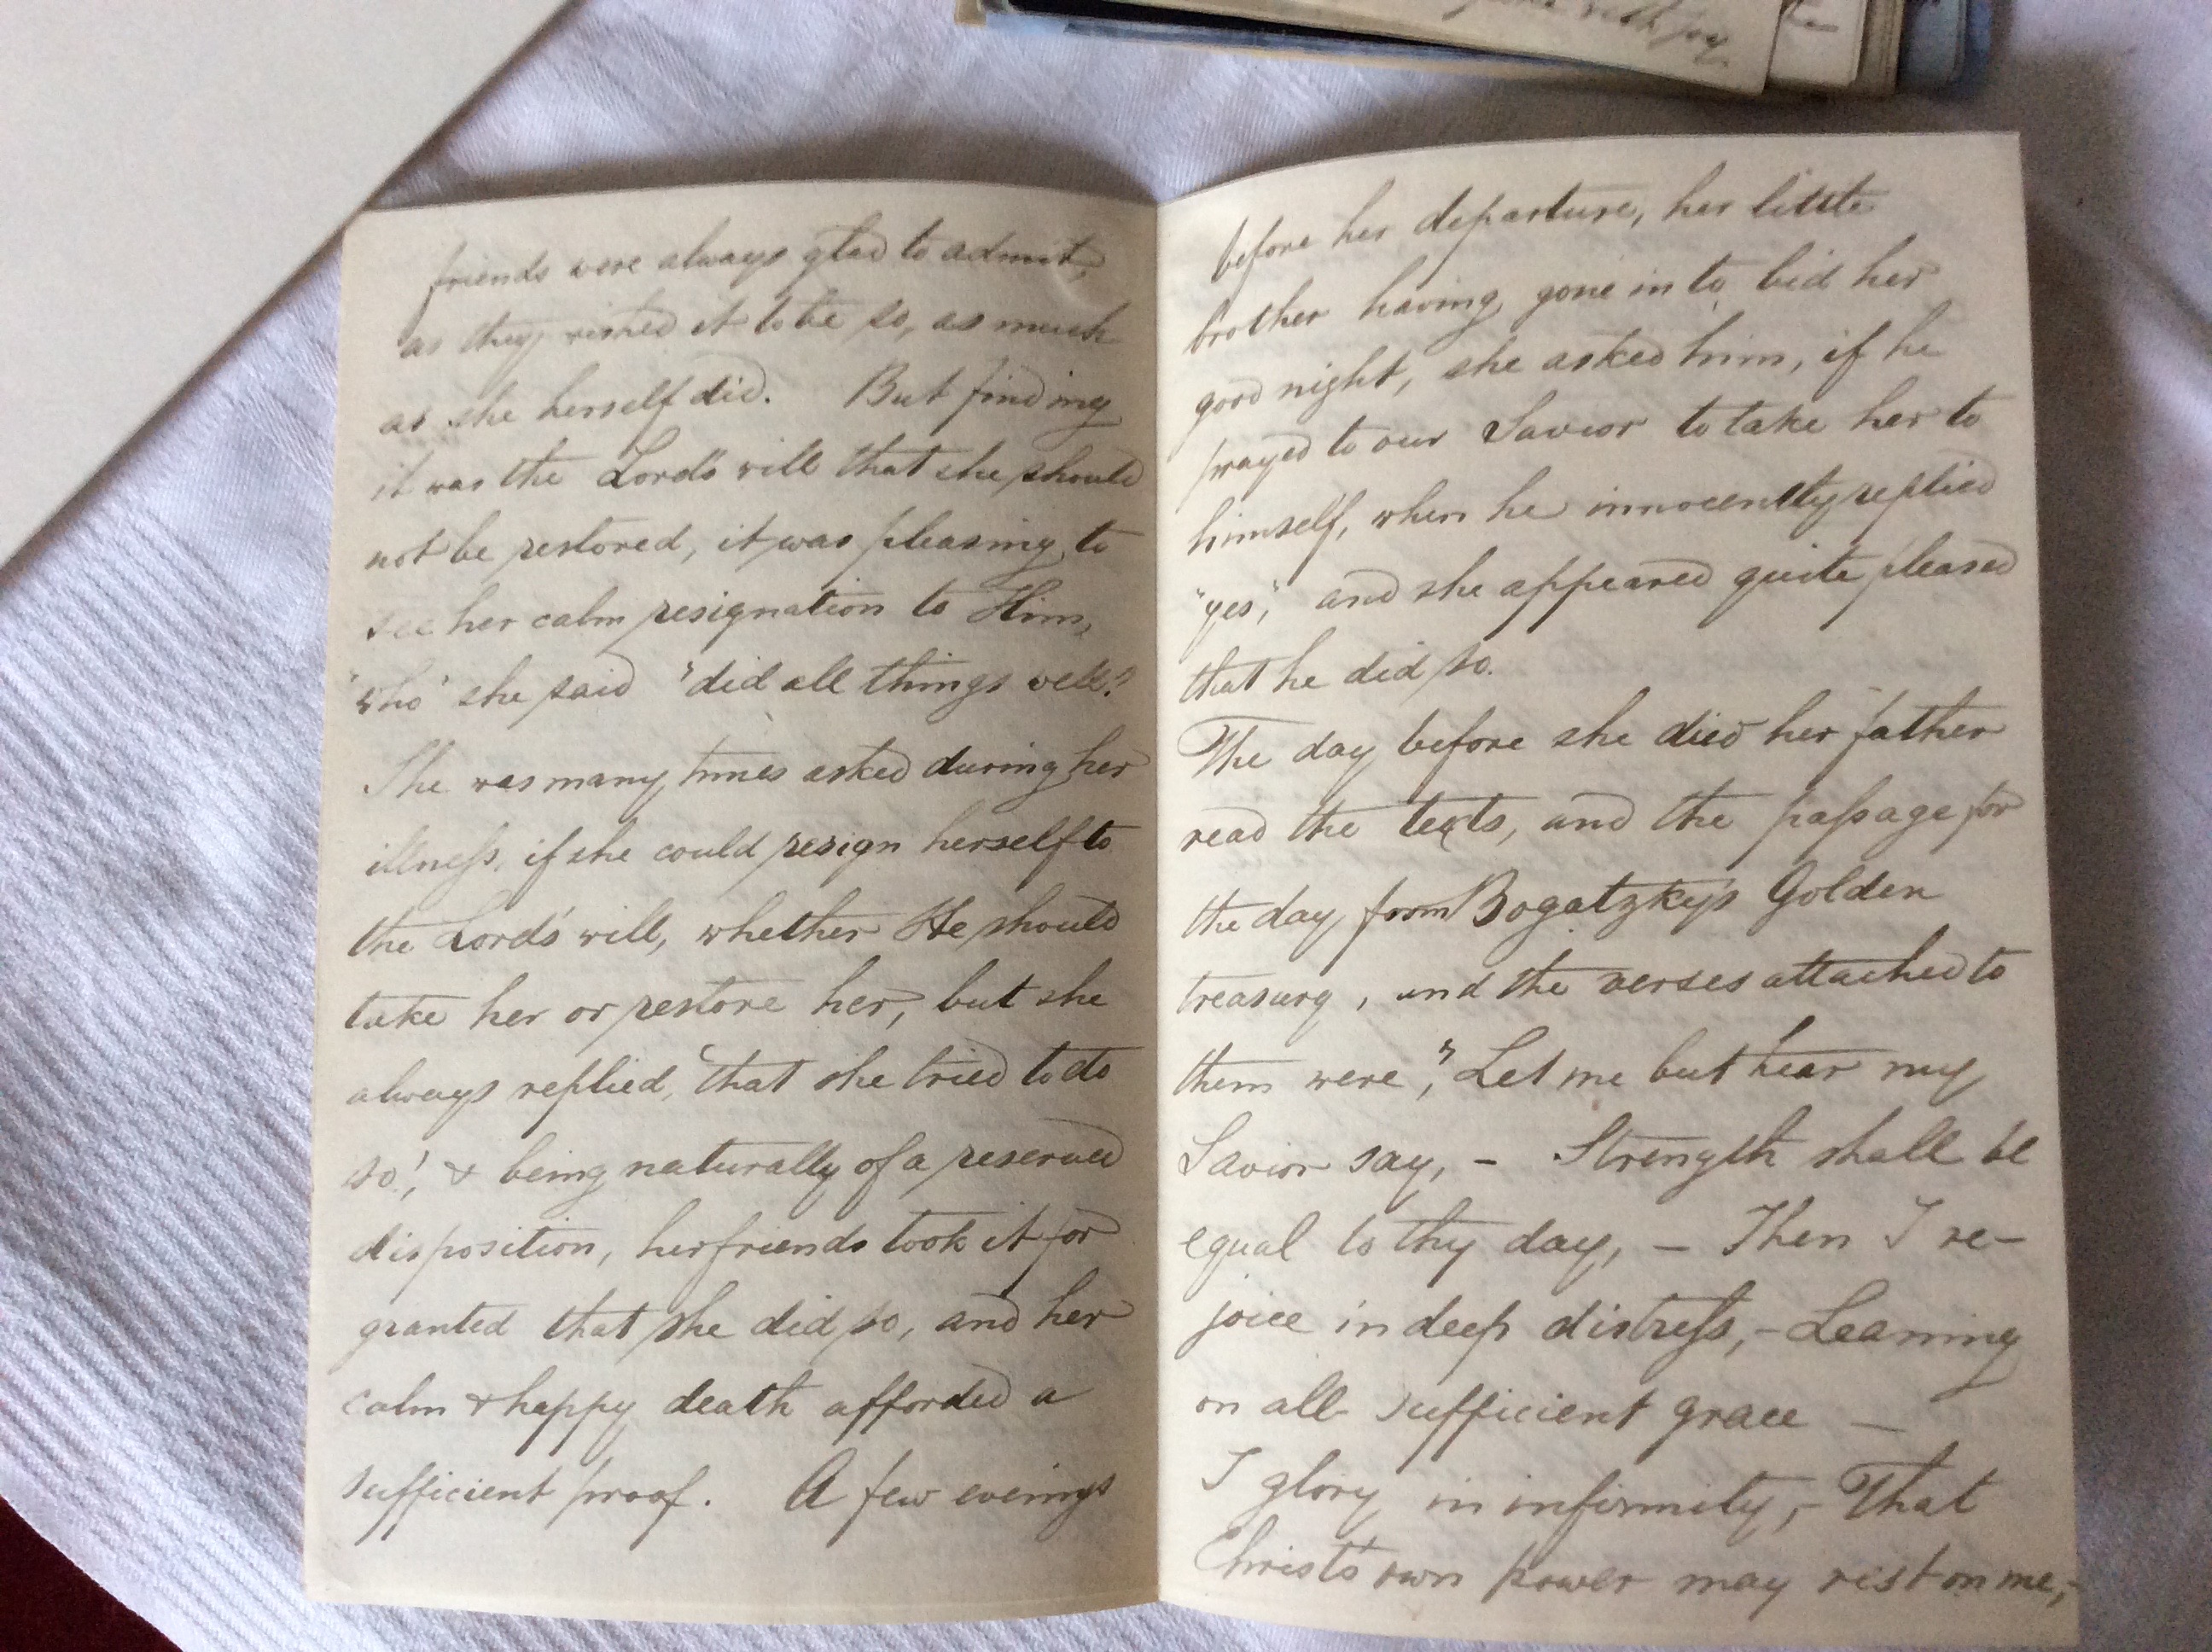 with joy
friends were always glad to admit,
as they wished it to be so, as much
as she herself did. But finding
it was the Lord's will that she should
not be restored, it was pleasing to
see her calm resignation to Him,
"who" she said "did all things well."
She was many times asked during her
illness, if she could resign herself to
the Lord's will, whether He should
take her or restore her, but she
always replied, "that she tried to do
so", & being naturally of a reserved
disposition, her friends took it for
granted that she did so, and her
calm & happy death afforded a
sufficient proof. A few evenings
before her departure, her little
brother having gone in to bid her
good night, she asked him, if he
prayed to our Savior to take her to
himself, when he innocently replied
"yes," and she appeared quite pleased
that he did so.
The day before she died her father
read the texts, and the passage for
the day from Bogatzky's Golden
treasury, and the verses attached to
them were, "Let me but hear my
Savior say, – Strength shall be
equal to thy day, – Then I re-
joice in deep distress, – Leaning
on all sufficient grace –
I glory in infirmity, – That
Christ's own power may rest on me, –